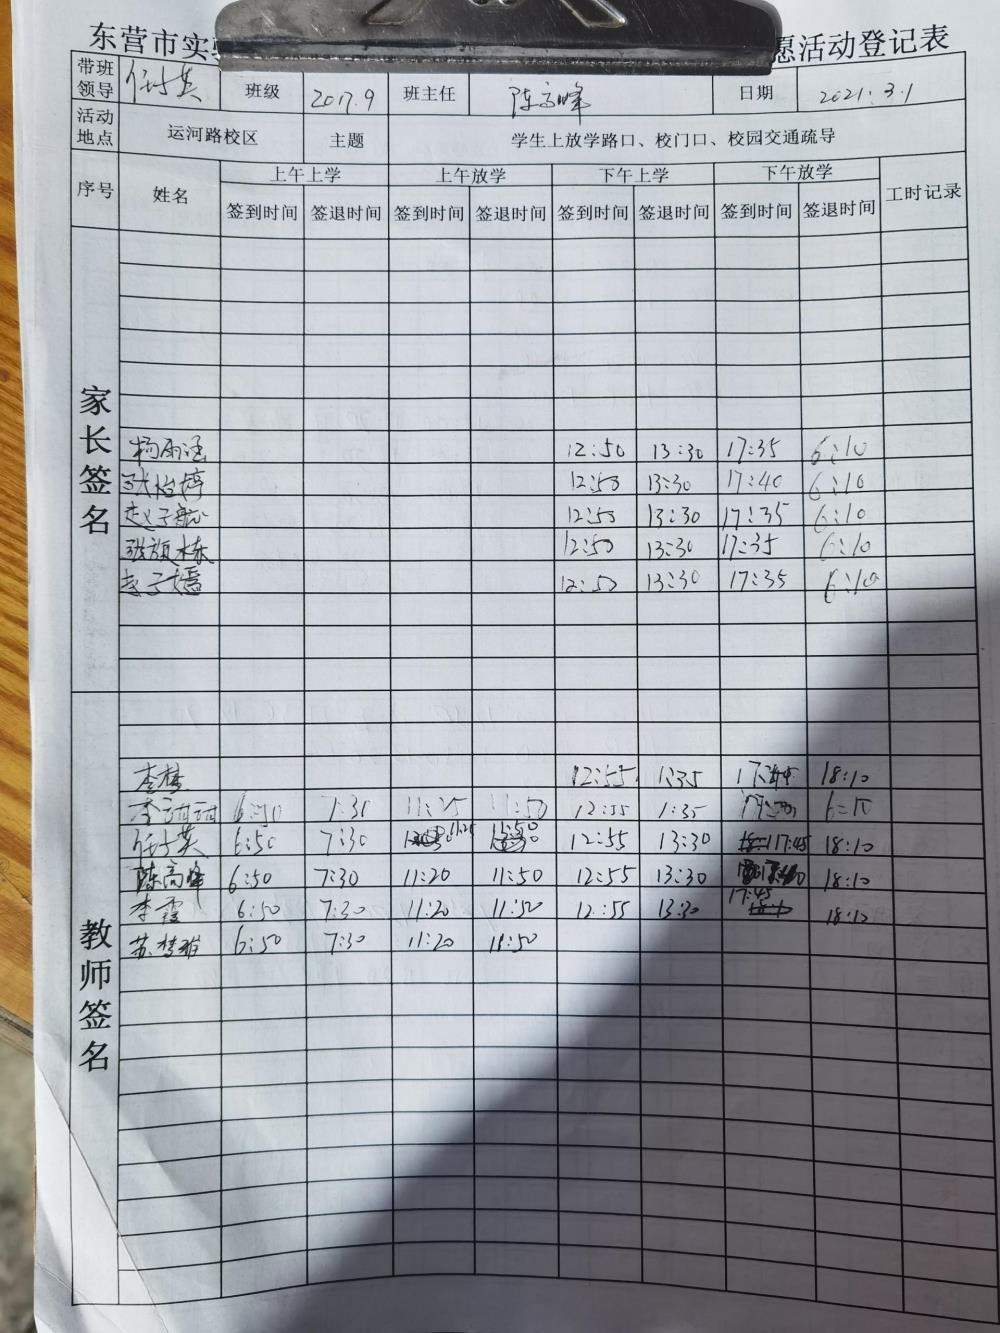 东营市实 愿活动登记表
带班领导 任分英 班级 2017.9 班主任 陈高峰 日期 2021.3.1
活动地点 运河路校区 主题 学生上放学路口、校门口、校园交通疏导
序号 姓名 上午上学 上午放学 下午上学 下午放学 工时记录
签到时间 签退时间 签到时间 签退时间 签到时间 签退时间 签到时间 签退时间
家长签名
杨雨涵 12:50 13:30 17:35 6:10
张 婷 12:50 13:30 17:40 6:10
赵子航 12:50 13:30 17:35 6:10
张 栋 12:50 13:30 17:35 6:10
赵子嫣 12:50 13:30 17:35 6:10
教师签名
李梦 12:55 1:35 18:10
李 6:50 7:30 11:25 11:50 12:55 1:35 6:10
任分英 6:50 7:30 11:25 11:50 12:55 13:30 17:45 18:10
陈高峰 6:50 7:30 11:20 11:50 12:55 13:30 18:10
李霞 6:50 7:30 11:20 11:50 12:55 13:30 17:45 18:10
苏梦 6:50 7:30 11:20 11:50